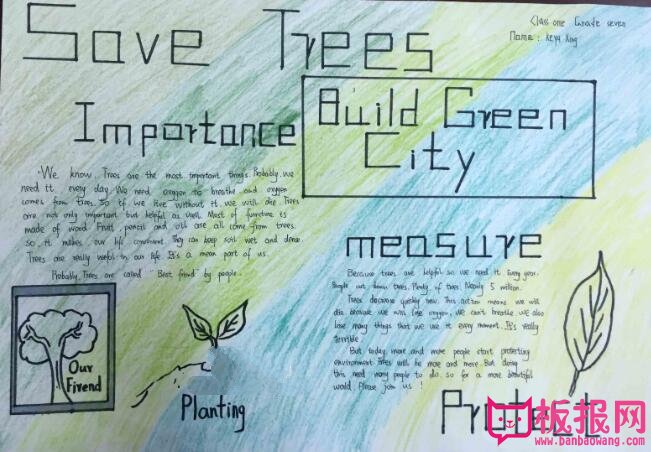 Save Trees
Class one Grade seven
Name:
Importance
Build Green
City
We know, Trees are the most important things. Probably, we
need it every day. We need oxygen to breathe and oxygen
comes from trees. So if we live without it, we will die. Trees
are not only important but helpful as well. Most of furniture is
made of wood. Fruit, pencil and are all come from trees.
so, it makes our life convenient. They can keep soil wet and
Trees are really useful in our life. It's a mean part of us.
Probably, Trees are called "Best friend" by people.
measure
Because trees are helpful so we need it Every year.
People cut down trees. Plenty of trees. Nearly 5 million.
Trees decrease quickly now. This action means we will
die. because we will lose oxygen, we can't breathe. We also
lose many things that we use it every moment. It's really
terrible.
But, today, more and more people start protecting
environment. Trees will be more and more. But doing
this need many people to do. so for a more beautiful
world. Please join us!
Our
Firend
Planting
Protect
板报网
www.banbaowang.com